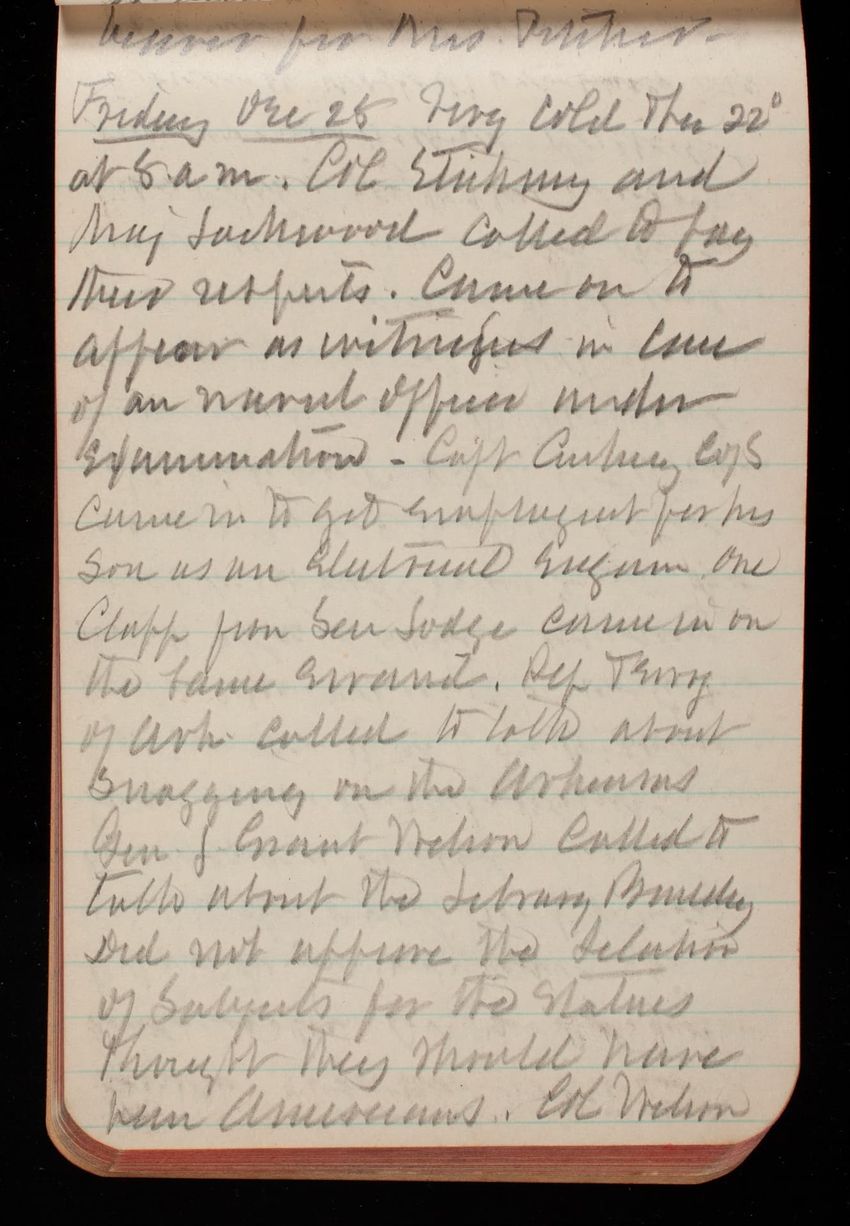 for Mrs.
Friday Dec 28 Very cold Ther 22°
at 8 a m. Col Stickney and
Maj Lockwood called to pay
their respects. Came on to
appear as witnesses in case
of an naval officer under
Examination - Capt Cushing CofS
Came in to get employment for his
Son as an Electrical Engineer. One
Clapp from Sen Lodge came in on
the same errand. Rep Terry
of Ark. called to talk about
Snagging on the Arkansas
Gen J Grant Wilson called to
talk about the Library Building
Did not approve the selection
of Subjects for the Statues
Thought they should have
been Americans. Col Wilson